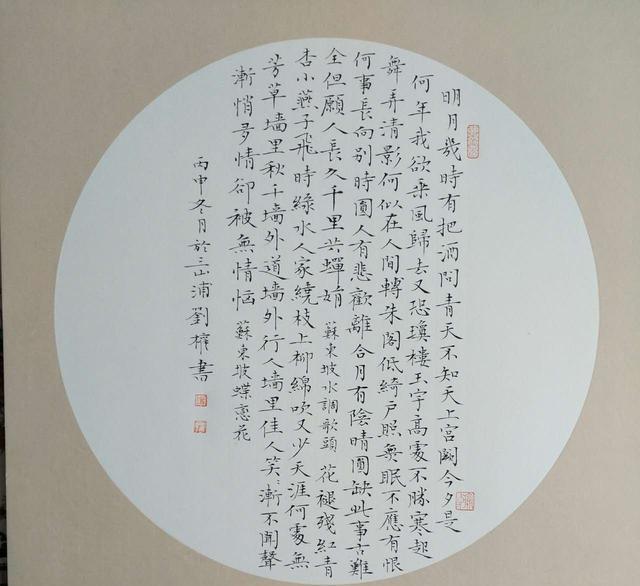 明月幾時有把酒問青天不知天上宮闕今夕是
何年我欲乘風歸去又恐瓊樓玉宇高處不勝寒起
舞弄清影何似在人間轉朱閣低綺戶照無眠不應有恨
何事長向別時圓人有悲歡離合月有陰晴圓缺此事古難
全但願人長久千里共嬋娟 蘇東坡水調歌頭 花褪殘紅青
杏小燕子飛時綠水人家繞枝上柳綿吹又少天涯何處無
芳草墙里秋千墙外道墙外行人墙里佳人笑漸不聞聲
漸悄多情卻被無情惱 蘇東坡蝶戀花
丙申冬月於三山浦劉權書